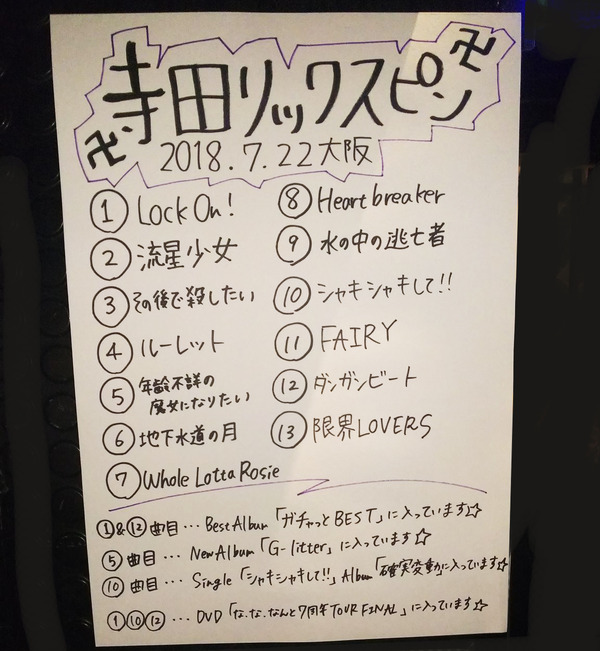 卍寺田リックスピン卍
2018.7.22大阪
① Lock On!
② 流星少女
③ その後で殺したい
④ ルーレット
⑤ 年齢不詳の
魔女になりたい
⑥ 地下水道の月
⑦ Whole Lotta Rosie
⑧ Heartbreaker
⑨ 水の中の逃亡者
⑩ シャキシャキして!!
⑪ FAIRY
⑫ ダンガンビート
⑬ 限界LOVERS
①&⑫曲目…Best Album「ガチャっとBEST」に入っています☆
⑤曲目…New Album「G-litter」に入っています☆
⑩曲目…Single「シャキシャキして!!」Album「確実変動」に入っています☆
①⑩⑫…DVD「な.な.なんと7周年TOUR FINAL」に入っています☆